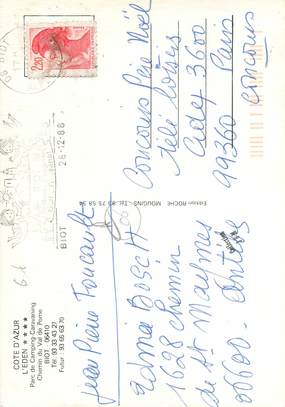 COTE D'AZUR
L'EDEN ★★★★
Parc de Camping-Caravaning
Chemin du Val de Pome
BIOT - 06410
Tél. 93 33 43 27
Futur : 93 65 63 70
61
Jean Pierre Foucault
Edmée BOSCH
1628 chemin
de St Maymes
06600 - Antibes
Edition ROCHE MOUGINS - Tél. 93 75 58 34
BIOT
28-12-88
2,20
Concours Père Noël
Télé Loisirs
Cedex 3600
99360 Paris
Concours